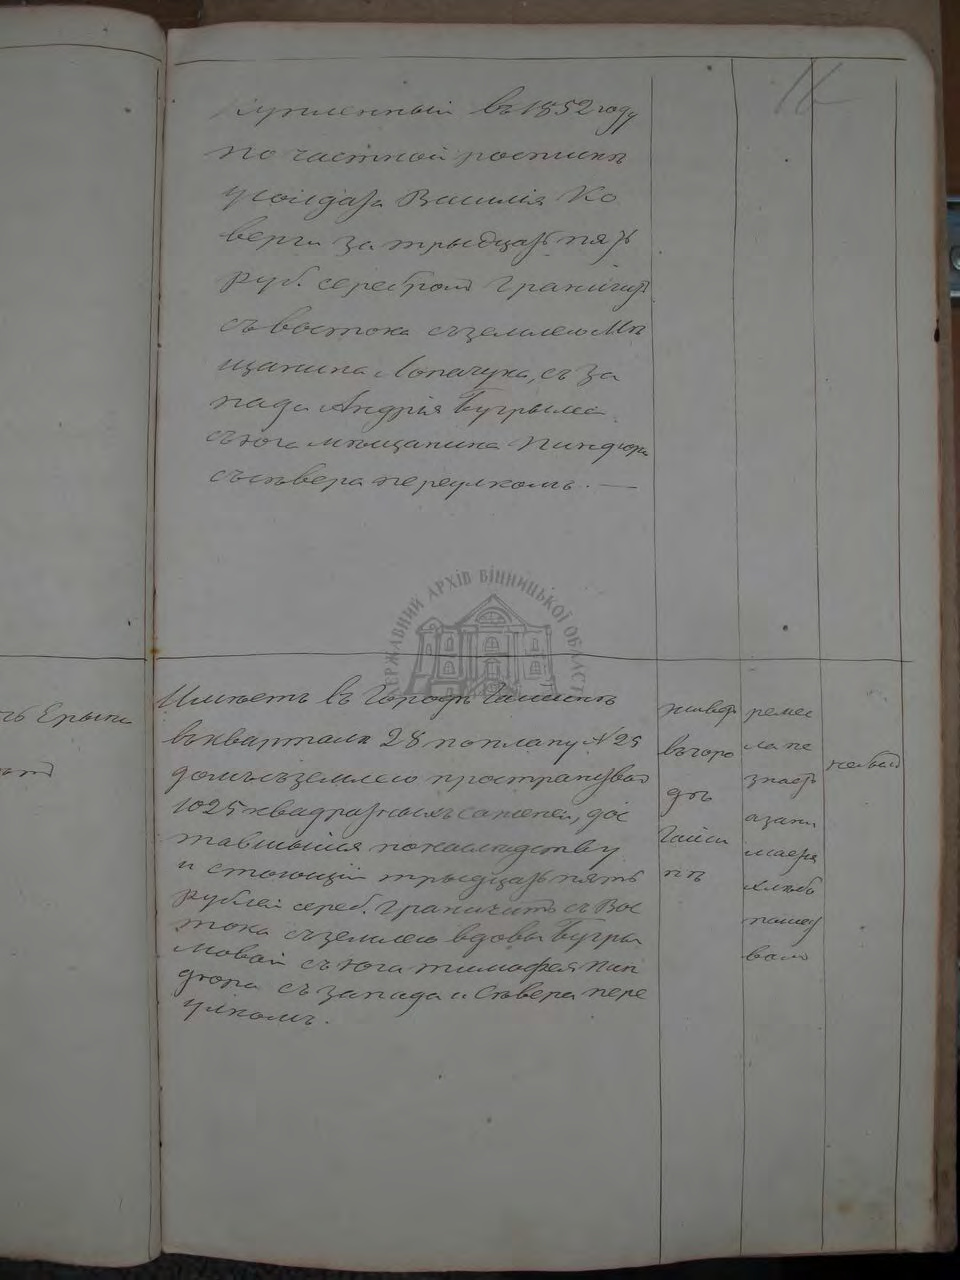 16
купленный въ 1852 году
по частной роспискѣ
у солдата Василія Ко
верги за тридцать пять
руб. серебромъ Граничит
съ востока съ землею Мѣ
щанина Лопачука, съ За
пада Андрѣя Бугрыма
съ юга мѣщанина Пиндюра
съ сѣвера переулкомъ. —
ДЕРЖАВНИЙ АРХІВ ВІННИЦЬКОЇ ОБЛАСТІ
Имѣетъ въ Городѣ Гайсинѣ
въ кварталѣ 28 по плану N 25
домъ съ землею пространством
1025 квадратныхъ саженей, дос
тавшійся по наслѣдству
и стоющій тридцать пять
рублей сереб. Граничитъ съ Вос
тока съ землею вдовы Бугры
мовой съ юга Тимофея Пин
дюра съ запада и Сѣвера пере
улкомъ.
живетъ
въ горо
дѣ
Гайси
нѣ
ремес
ла не
знаетъ
а зани
мается
хлѣбо
пашес
вомъ
небылъ